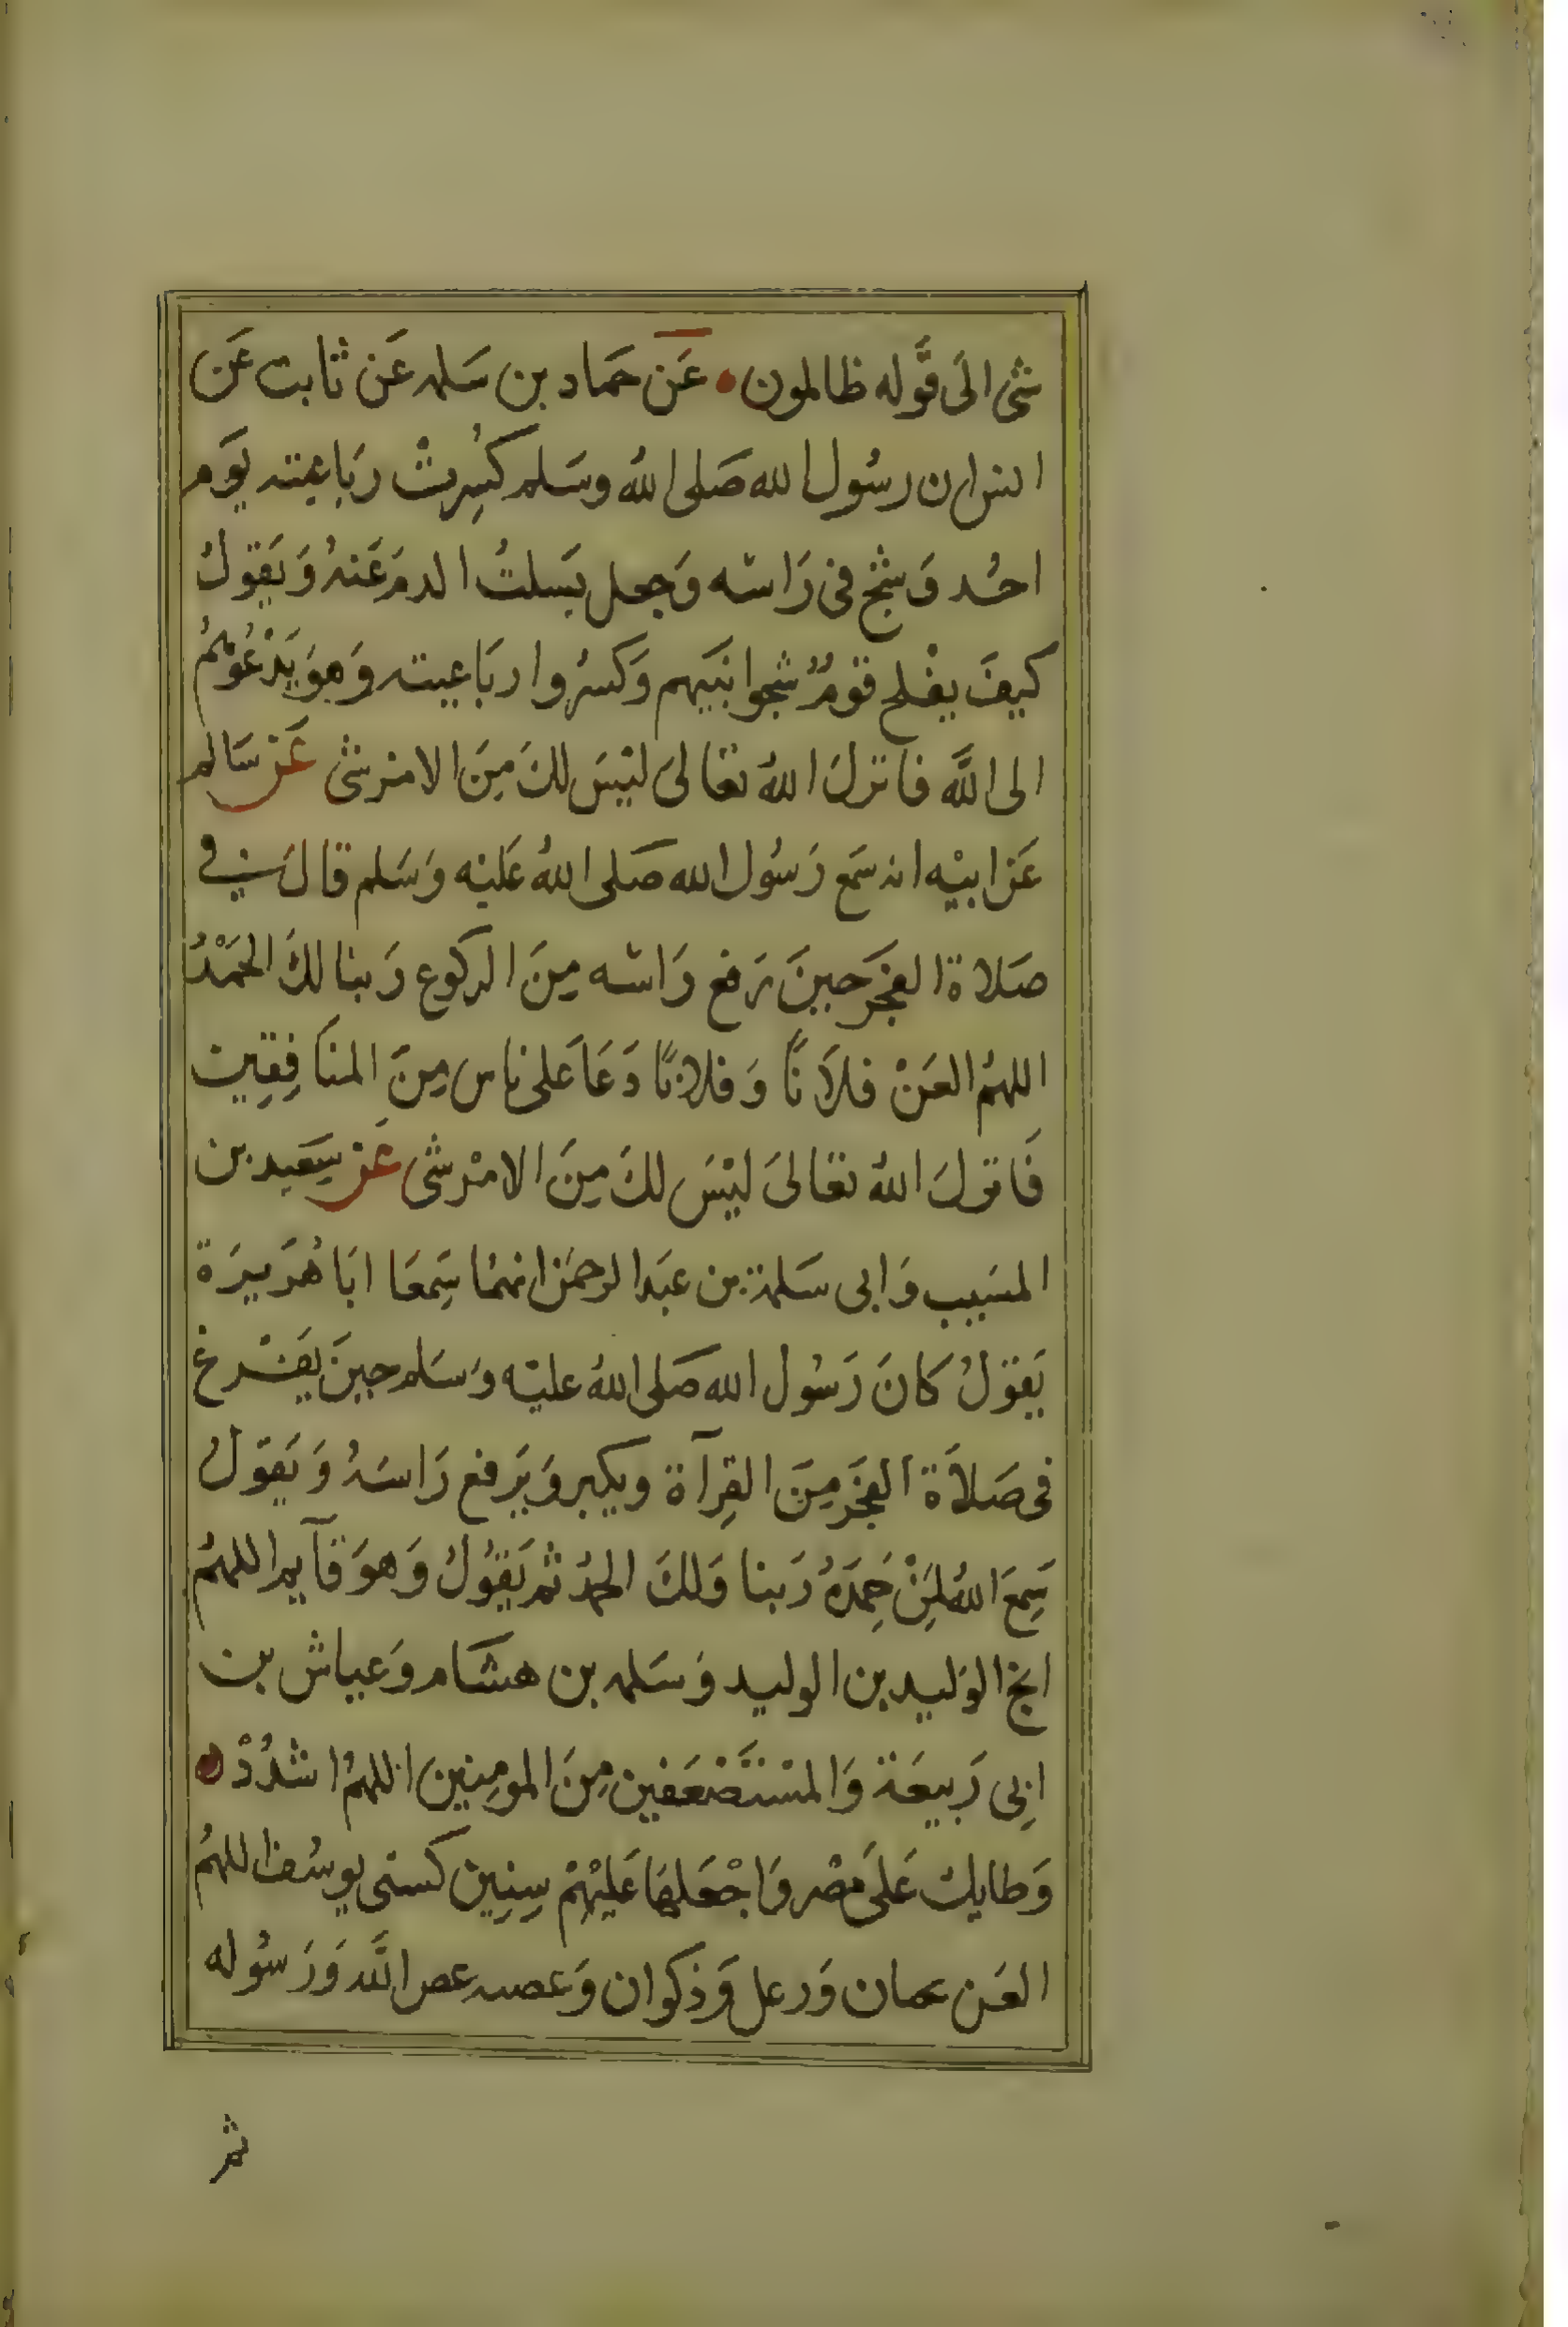 شى الَى قَوله ظالمون • عَن حَماد بن سَلمه عَن ثابت عَن
انس ان رسُول الله صَلى اللهُ وسَلم كسُرِتْ رَبَاعيته يَوم
احُد وَشج فى رَاسه وَجعل يَسلتُ الدم عَنهُ وَيَقولُ
كيفَ يفْلح قومٌ شجوا نبَيهم وَكسرُوا ربَاعيته وَهوَ يَدْعُوهُمُ
الى اللَّه فانزلَ اللهُ تعَالىَ ليْسَ لكَ مِنَ الامر شى عَن سَالم
عَن ابيْه انه سَمع رَسُول الله صَلى اللهُ عَليْه وَسَلم قالَ فى
صَلاة الفَجَر حينَ رَفع رَاسه مِنَ الركوع رَبنا لكَ الحَمْدُ
اللهمُ العَنْ فلاَناً وَفلاناً دَعَا عَلى ناس مِنَ المنَافِقِين
فَانزلَ اللهُ تعَالىَ ليْسَ لكَ مِنَ الامْر شى عَن سَعِيد بن
المسَيب وَابى سَلمة بن عَبد الرحمَن انهمُا سَمِعَا ابَا هُرَيرَة
يَقوَلُ كانَ رَسُول الله صَلى اللهُ عليْه وَسَلم حينَ يَفْرغ
فى صَلاَة الفَجَر مِنَ القِرآة ويكبر وَيَرفع رَاسَهُ وَيَقوَلُ
سَمِعَ اللهُ لمَِنْ حَمِدَهُ رَبنا وَلكَ الحمدُ ثم يَقوُلُ وَهوَ قآيم اللهمُ
انج الوَليد بن الوليد وَسَلمه بن هشَام وَعياش بن
ابِى رَبيعَة وَالمسْتَضعَفين مِنَ المومِنِين اللهمُ اشدُدْ •
وَطايك عَلَى مضر وَاجْعَلهَا عَليْهِمْ سِنِين كسنى يوسُف اللهمُ
العَن عصان وَرعل وَذكوان وَعصيه عص اللَّه وَرَسُوله
ثم